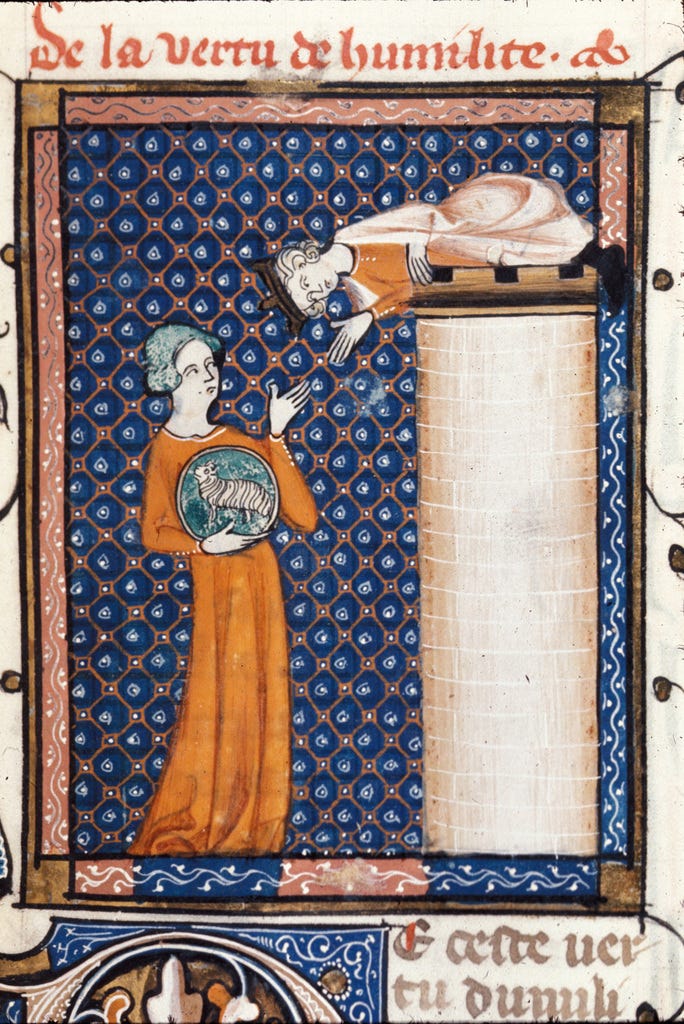 De la vertu de humilite.
E ceste uer
tu dumili